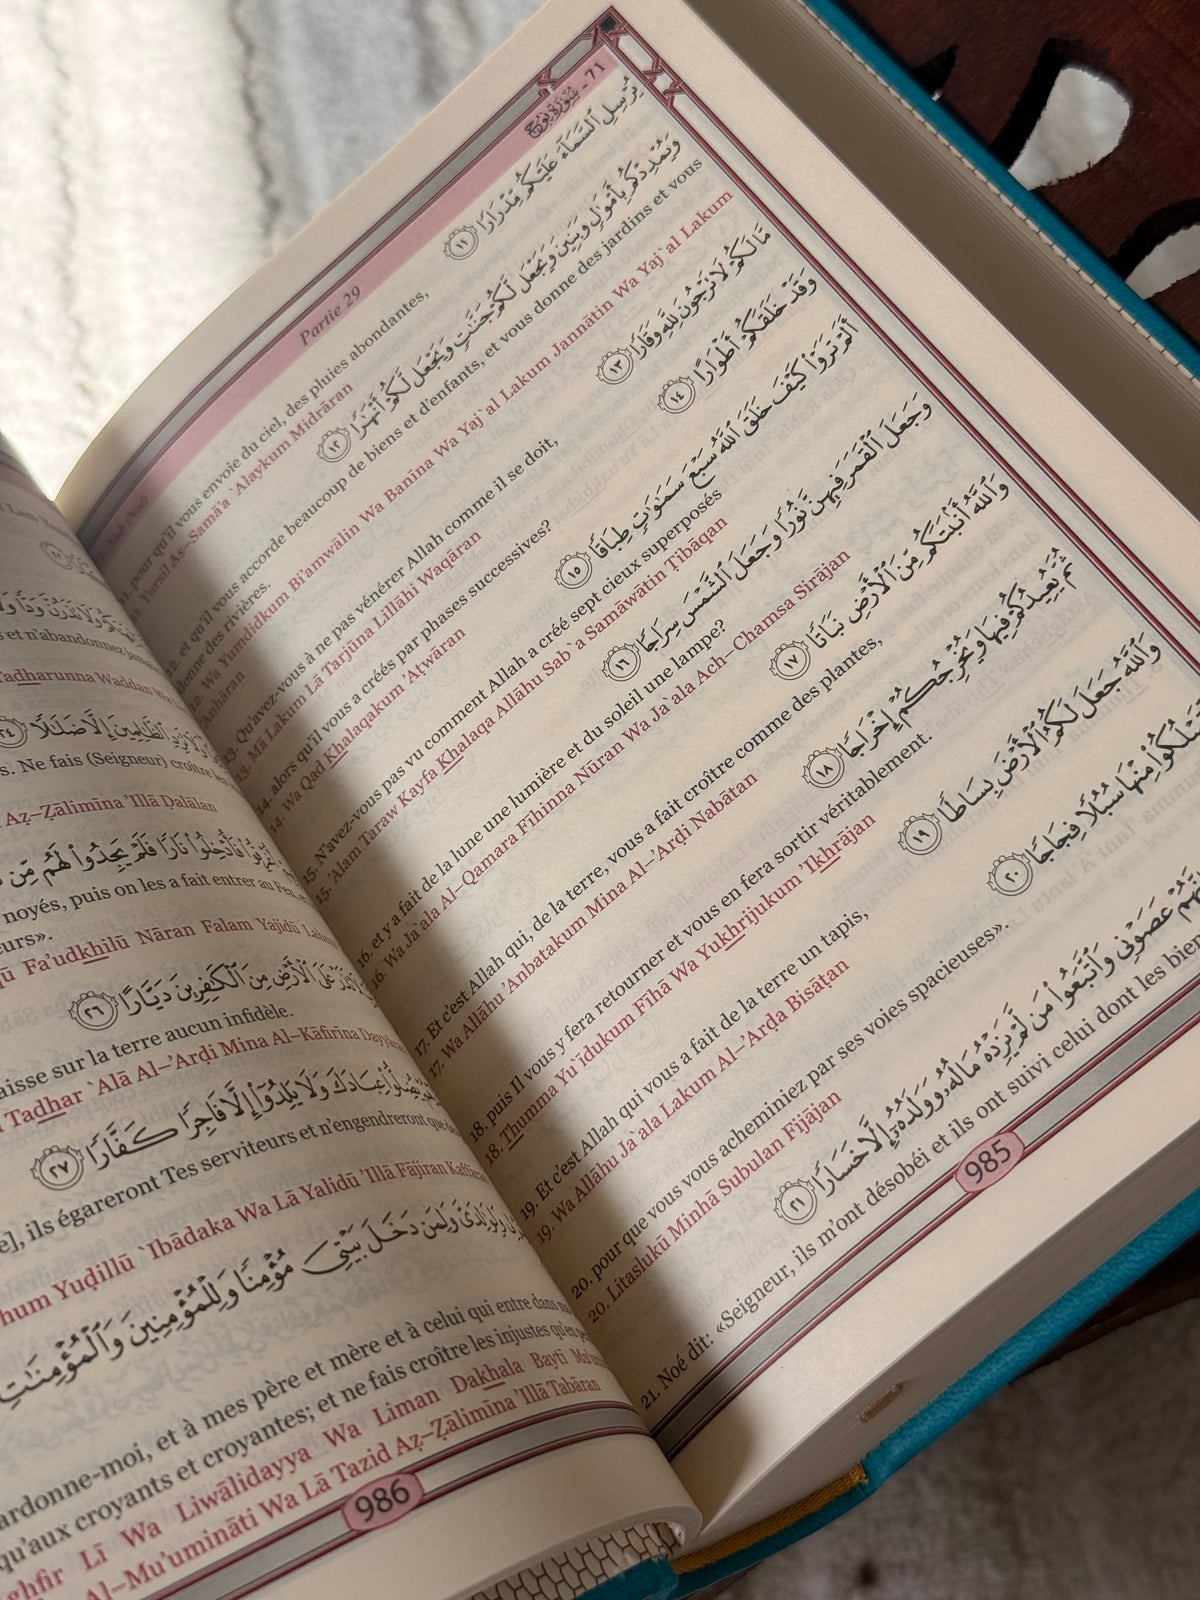 سُورَةُ نُوحٍ - 71
Partie 29
Nuh (Noé)
يُرْسِلِ ٱلسَّمَآءَ عَلَيْكُم مِّدْرَارًا ١١
11. pour qu'il vous envoie du ciel, des pluies abondantes,
11. Yursil As–Samā'a `Alaykum Midrāran
وَيُمْدِدْكُم بِأَمْوَٰلٍ وَبَنِينَ وَيَجْعَل لَّكُمْ جَنَّٰتٍ وَيَجْعَل لَّكُمْ أَنْهَٰرًا ١٢
12. et qu'il vous accorde beaucoup de biens et d'enfants, et vous donne des jardins et vous
donne des rivières.
12. Wa Yumdidkum Bi'amwālin Wa Banīna Wa Yaj`al Lakum Jannātin Wa Yaj`al Lakum
'Anhāran
مَّا لَكُمْ لَا تَرْجُونَ لِلَّهِ وَقَارًا ١٣
13. Qu'avez-vous à ne pas vénérer Allah comme il se doit,
13. Mā Lakum Lā Tarjūna Lillāhi Waqāran
وَقَدْ خَلَقَكُمْ أَطْوَارًا ١٤
14. alors qu'il vous a créés par phases successives?
14. Wa Qad Khalaqakum 'Aţwāran
أَلَمْ تَرَوْا۟ كَيْفَ خَلَقَ ٱللَّهُ سَبْعَ سَمَٰوَٰتٍ طِبَاقًا ١٥
15. N'avez-vous pas vu comment Allah a créé sept cieux superposés
15. 'Alam Taraw Kayfa Khalaqa Allāhu Sab`a Samāwātin Ţibāqan
وَجَعَلَ ٱلْقَمَرَ فِيهِنَّ نُورًا وَجَعَلَ ٱلشَّمْسَ سِرَاجًا ١٦
16. et y a fait de la lune une lumière et du soleil une lampe?
16. Wa Ja`ala Al–Qamara Fīhinna Nūran Wa Ja`ala Ach–Chamsa Sirājan
وَٱللَّهُ أَنۢبَتَكُم مِّنَ ٱلْأَرْضِ نَبَاتًا ١٧
17. Et c'est Allah qui, de la terre, vous a fait croître comme des plantes,
17. Wa Allāhu 'Anbatakum Mina Al–'Arđi Nabātan
ثُمَّ يُعِيدُكُمْ فِيهَا وَيُخْرِجُكُمْ إِخْرَاجًا ١٨
18. puis Il vous y fera retourner et vous en fera sortir véritablement.
18. Thumma Yu`īdukum Fīhā Wa Yukhrijukum 'Ikhrājan
وَٱللَّهُ جَعَلَ لَكُمُ ٱلْأَرْضَ بِسَاطًا ١٩
19. Et c'est Allah qui vous a fait de la terre un tapis,
19. Wa Allāhu Ja`ala Lakum Al–'Arđa Bisāţan
لِّتَسْلُكُوا۟ مِنْهَا سُبُلًا فِجَاجًا ٢٠
20. pour que vous vous acheminiez par ses voies spacieuses».
20. Litaslukū Minhā Subulan Fijājan
عَصَوْنِى وَٱتَّبَعُوا۟ مَن لَّمْ يَزِدْهُ مَالُهُۥ وَوَلَدُهُۥٓ إِلَّا خَسَارًا ٢١
21. Noé dit: «Seigneur, ils m'ont désobéi et ils ont suivi celui dont les biens
985
s et n'abandonnez
Tadharunna Waddan
ٱلظَّٰلِمِينَ إِلَّا ضَلَٰلًا ٢٤
s. Ne fais (Seigneur) croître
Až–Žālimīna 'Illā Đalālan
فَأُدْخِلُوا۟ نَارًا فَلَمْ يَجِدُوا۟ لَهُم مِّن
noyés, puis on les a fait entrer au Feu,
eurs».
Fa'udkhilū Nāran Falam Yajidū
عَلَى ٱلْأَرْضِ مِنَ ٱلْكَٰفِرِينَ دَيَّارًا ٢٦
aisse sur la terre aucun infidèle.
Tadhar `Alā Al–'Arđi Mina Al–Kāfirīna
عِبَادَكَ وَلَا يَلِدُوٓا۟ إِلَّا فَاجِرًا كَفَّارًا ٢٧
e], ils égareront Tes serviteurs et n'engendreront que
hum Yuđillū `Ibādaka Wa Lā Yalidū 'Illā Fājiran Kaffāran
وَلِمَن دَخَلَ بَيْتِىَ مُؤْمِنًا وَلِلْمُؤْمِنِينَ وَٱلْمُؤْمِنَٰتِ
ardonne-moi, et à mes père et mère et à celui qui entre dans
qu'aux croyants et croyantes; et ne fais croître les injustes qu'en
ghfir Lī Wa Liwālidayya Wa Liman Dakhala Baytī
Al–Mu'umināti Wa Lā Tazid Až–Žālimīna 'Illā Tabāran
986